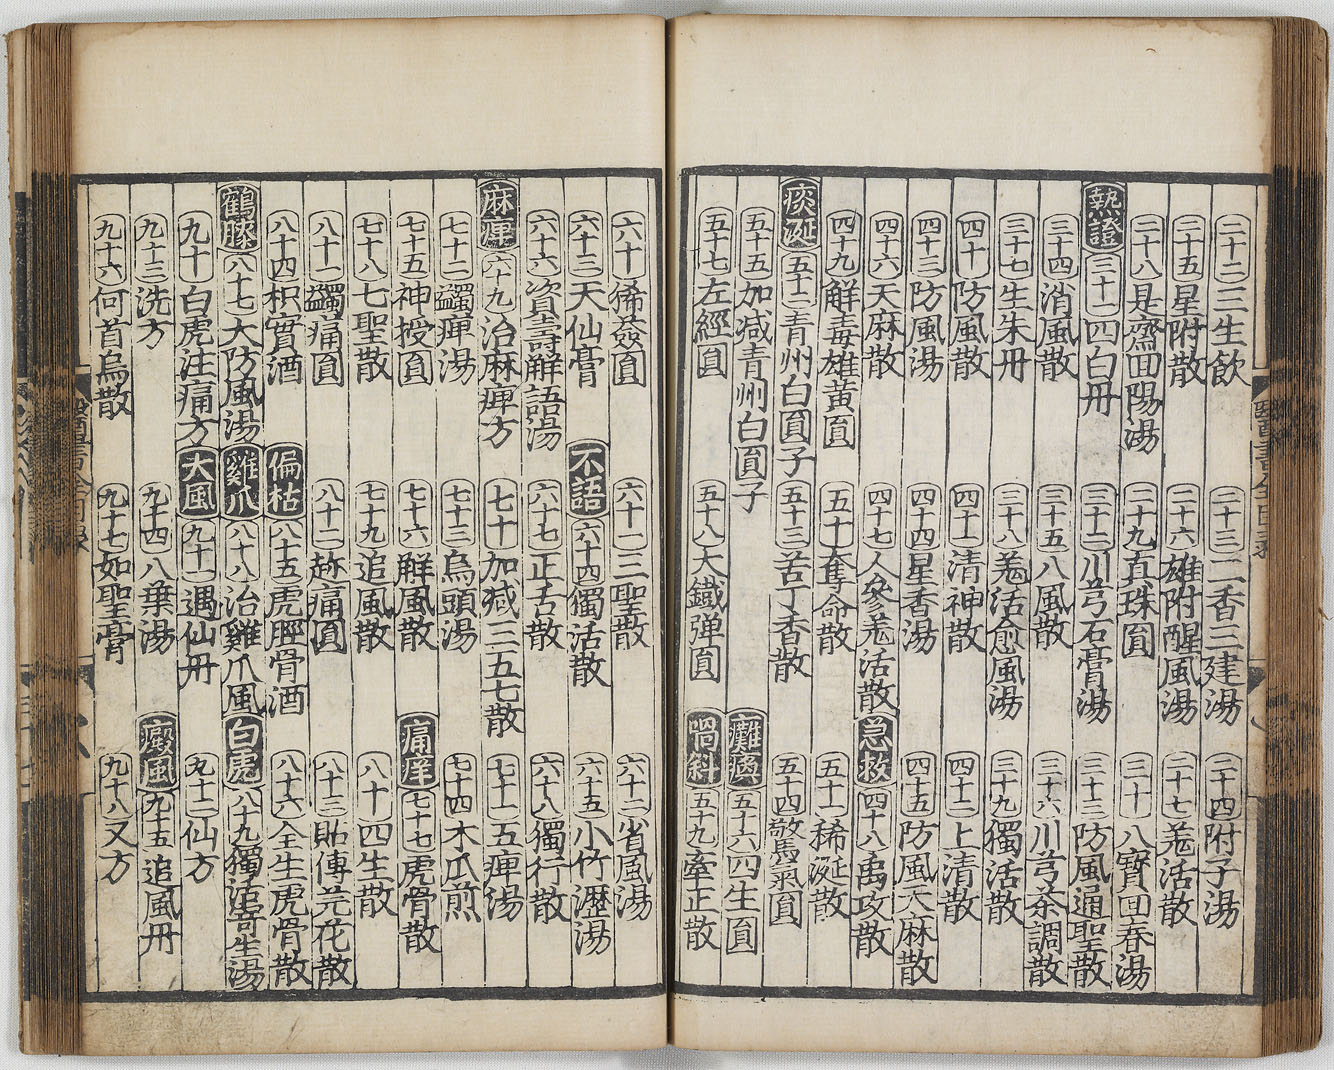 二十二三生飲 二十三二香三建湯 二十四附子湯
二十五星附散 二十六雄附醒風湯 二十七羗活散
二十八昃齋回陽湯 二十九真珠圓 三十八寶回春湯
熱證 三十一四白丹 三十二川芎石膏湯 三十三防風通聖散
三十四消風散 三十五八風散 三十六川芎茶調散
三十七生朱丹 三十八羗活愈風湯 三十九獨活散
四十防風散 四十一清神散 四十二上清散
四十三防風湯 四十四星香湯 四十五防風天麻散
四十六天麻散 四十七人參羗活散 急救 四十八禹攻散
四十九解毒雄黃圓 五十奪命散 五十一稀涎散
痰涎 五十二青州白圓子 五十三苦丁香散 五十四驚氣圓
五十五加减青州白圓子 癱瘓 五十六四生圓
五十七左經圓 五十八大鐵弹圓 喎斜 五十九牽正散
六十豨薟圓 六十一三聖散 六十二省風湯
六十三天仙膏 不語 六十四獨活散 六十五小竹瀝湯
六十六資壽解語湯 六十七正舌散 六十八獨行散
麻痺 六十九治麻痺方 七十加减三五七散 七十一五痺湯
七十二蠲痺湯 七十三烏頭湯 七十四木瓜煎
七十五神授圓 七十六解風散 痛痒 七十七虎骨散
七十八七聖散 七十九追風散 八十四生散
八十一蠲痛圓 八十二趂痛圓 八十三貼傅芫花散
八十四枳實酒 偏枯 八十五虎脛骨酒 八十六全生虎骨散
鶴膝 八十七大防風湯 雞爪 八十八治雞爪風 白虎 八十九獨活寄生湯
九十白虎注痛方 大風 九十一遇仙丹 九十二仙方
九十三洗方 九十四八葉湯 癜風 九十五追風丹
九十六何首烏散 九十七如聖膏 九十八又方